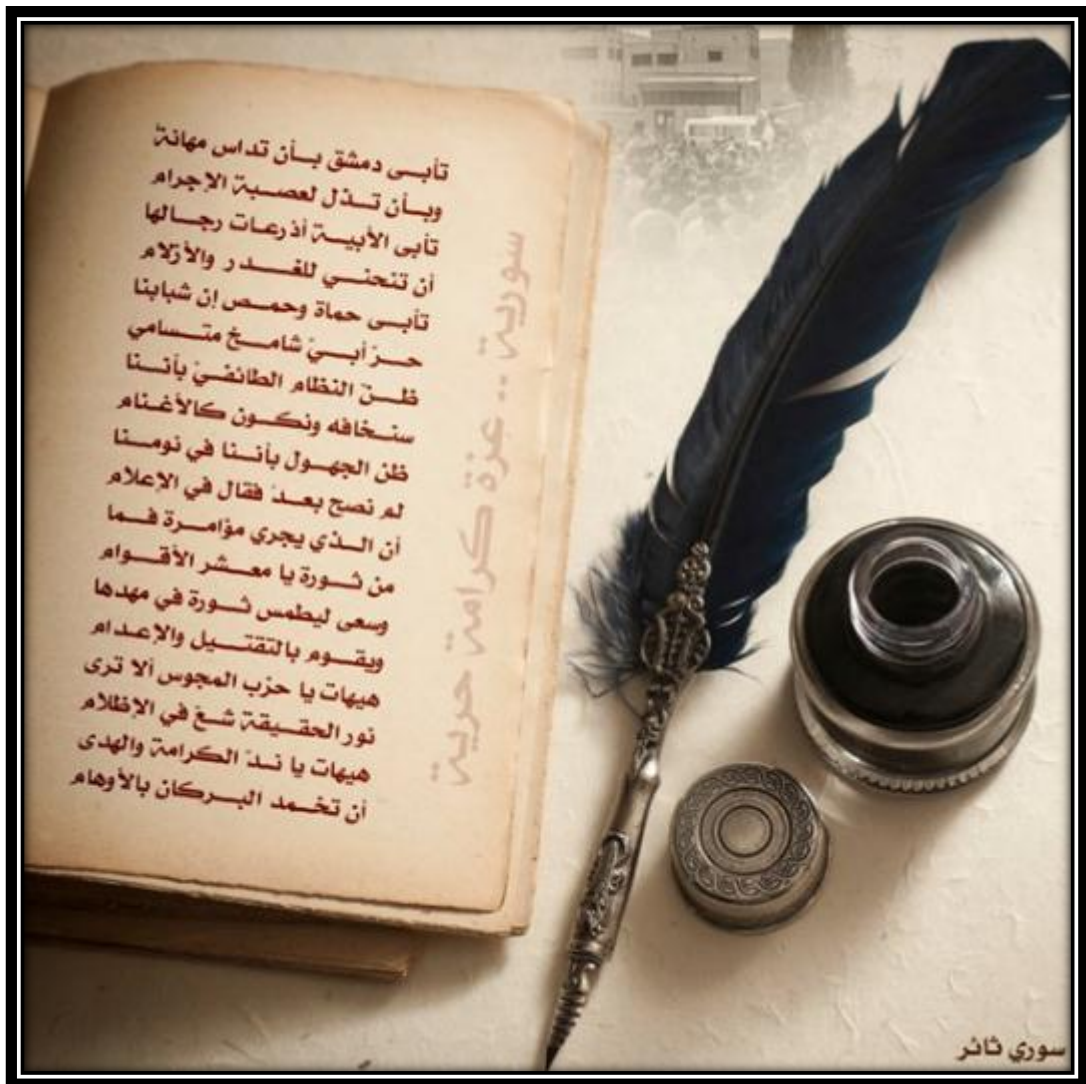 تأبى دمشق بأن تداس مهانة
وبأن تذل لعصبة الإجرام
تأبى الأبية أذرعات رجالها
أن تنحني للغدر والأزلام
تأبى حماة وحمص إن شبابنا
حرّ أبيّ شامخ متسامي
ظنّ النظام الطائفيّ بأننا
سنخافه ونكون كالأغنام
ظن الجهول بأننا في نومنا
لم نصح بعدُ فقال في الإعلام
أن الذي يجري مؤامرة فما
من ثورة يا معشر الأقوام
وسعى ليطمس ثورة في مهدها
ويقوم بالتقتيل والإعدام
هيهات يا حزب المجوس ألا ترى
نور الحقيقة شعّ في الإظلام
هيهات يا ندّ الكرامة والهدى
أن تخمد البركان بالأوهام
سورية .. عزة كرامة حرية
سوري ثائر